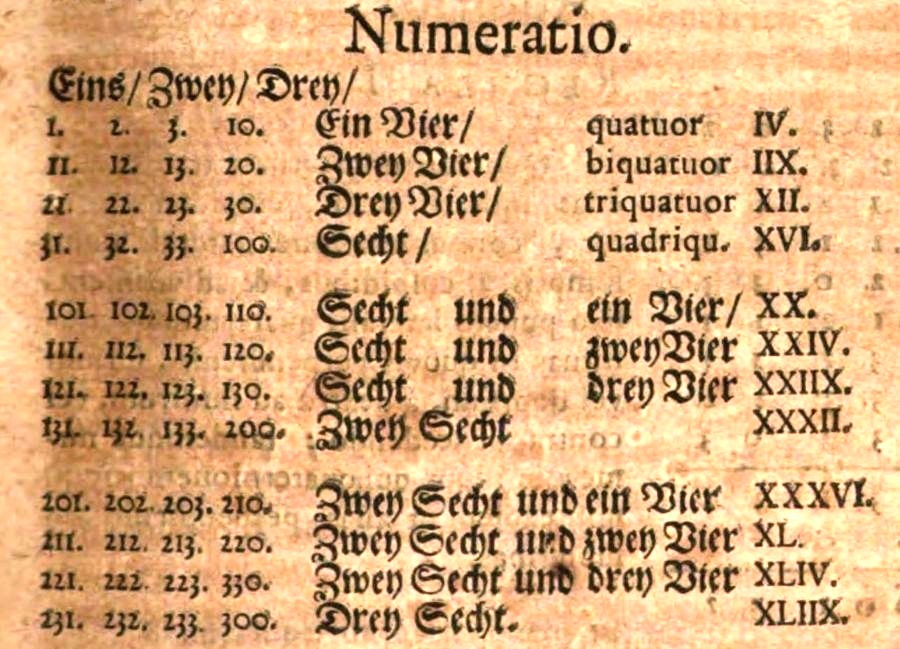 Numeratio.
Eins/ Zwey/ Drey/
1. 2. 3. 10. Ein Vier/ quatuor IV.
11. 12. 13. 20. Zwey Vier/ biquatuor IIX.
21. 22. 23. 30. Drey Vier/ triquatuor XII.
31. 32. 33. 100. Secht/ quadriqu. XVI.
101. 102. 103. 110. Secht und ein Vier/ XX.
111. 112. 113. 120. Secht und zwey Vier XXIV.
121. 122. 123. 130. Secht und drey Vier XXIIX.
131. 132. 133. 200. Zwey Secht XXXII.
201. 202. 203. 210. Zwey Secht und ein Vier XXXVI.
211. 212. 213. 220. Zwey Secht und zwey Vier XL.
221. 222. 223. 330. Zwey Secht und drey Vier XLIV.
231. 232. 233. 300. Drey Secht. XLIIX.